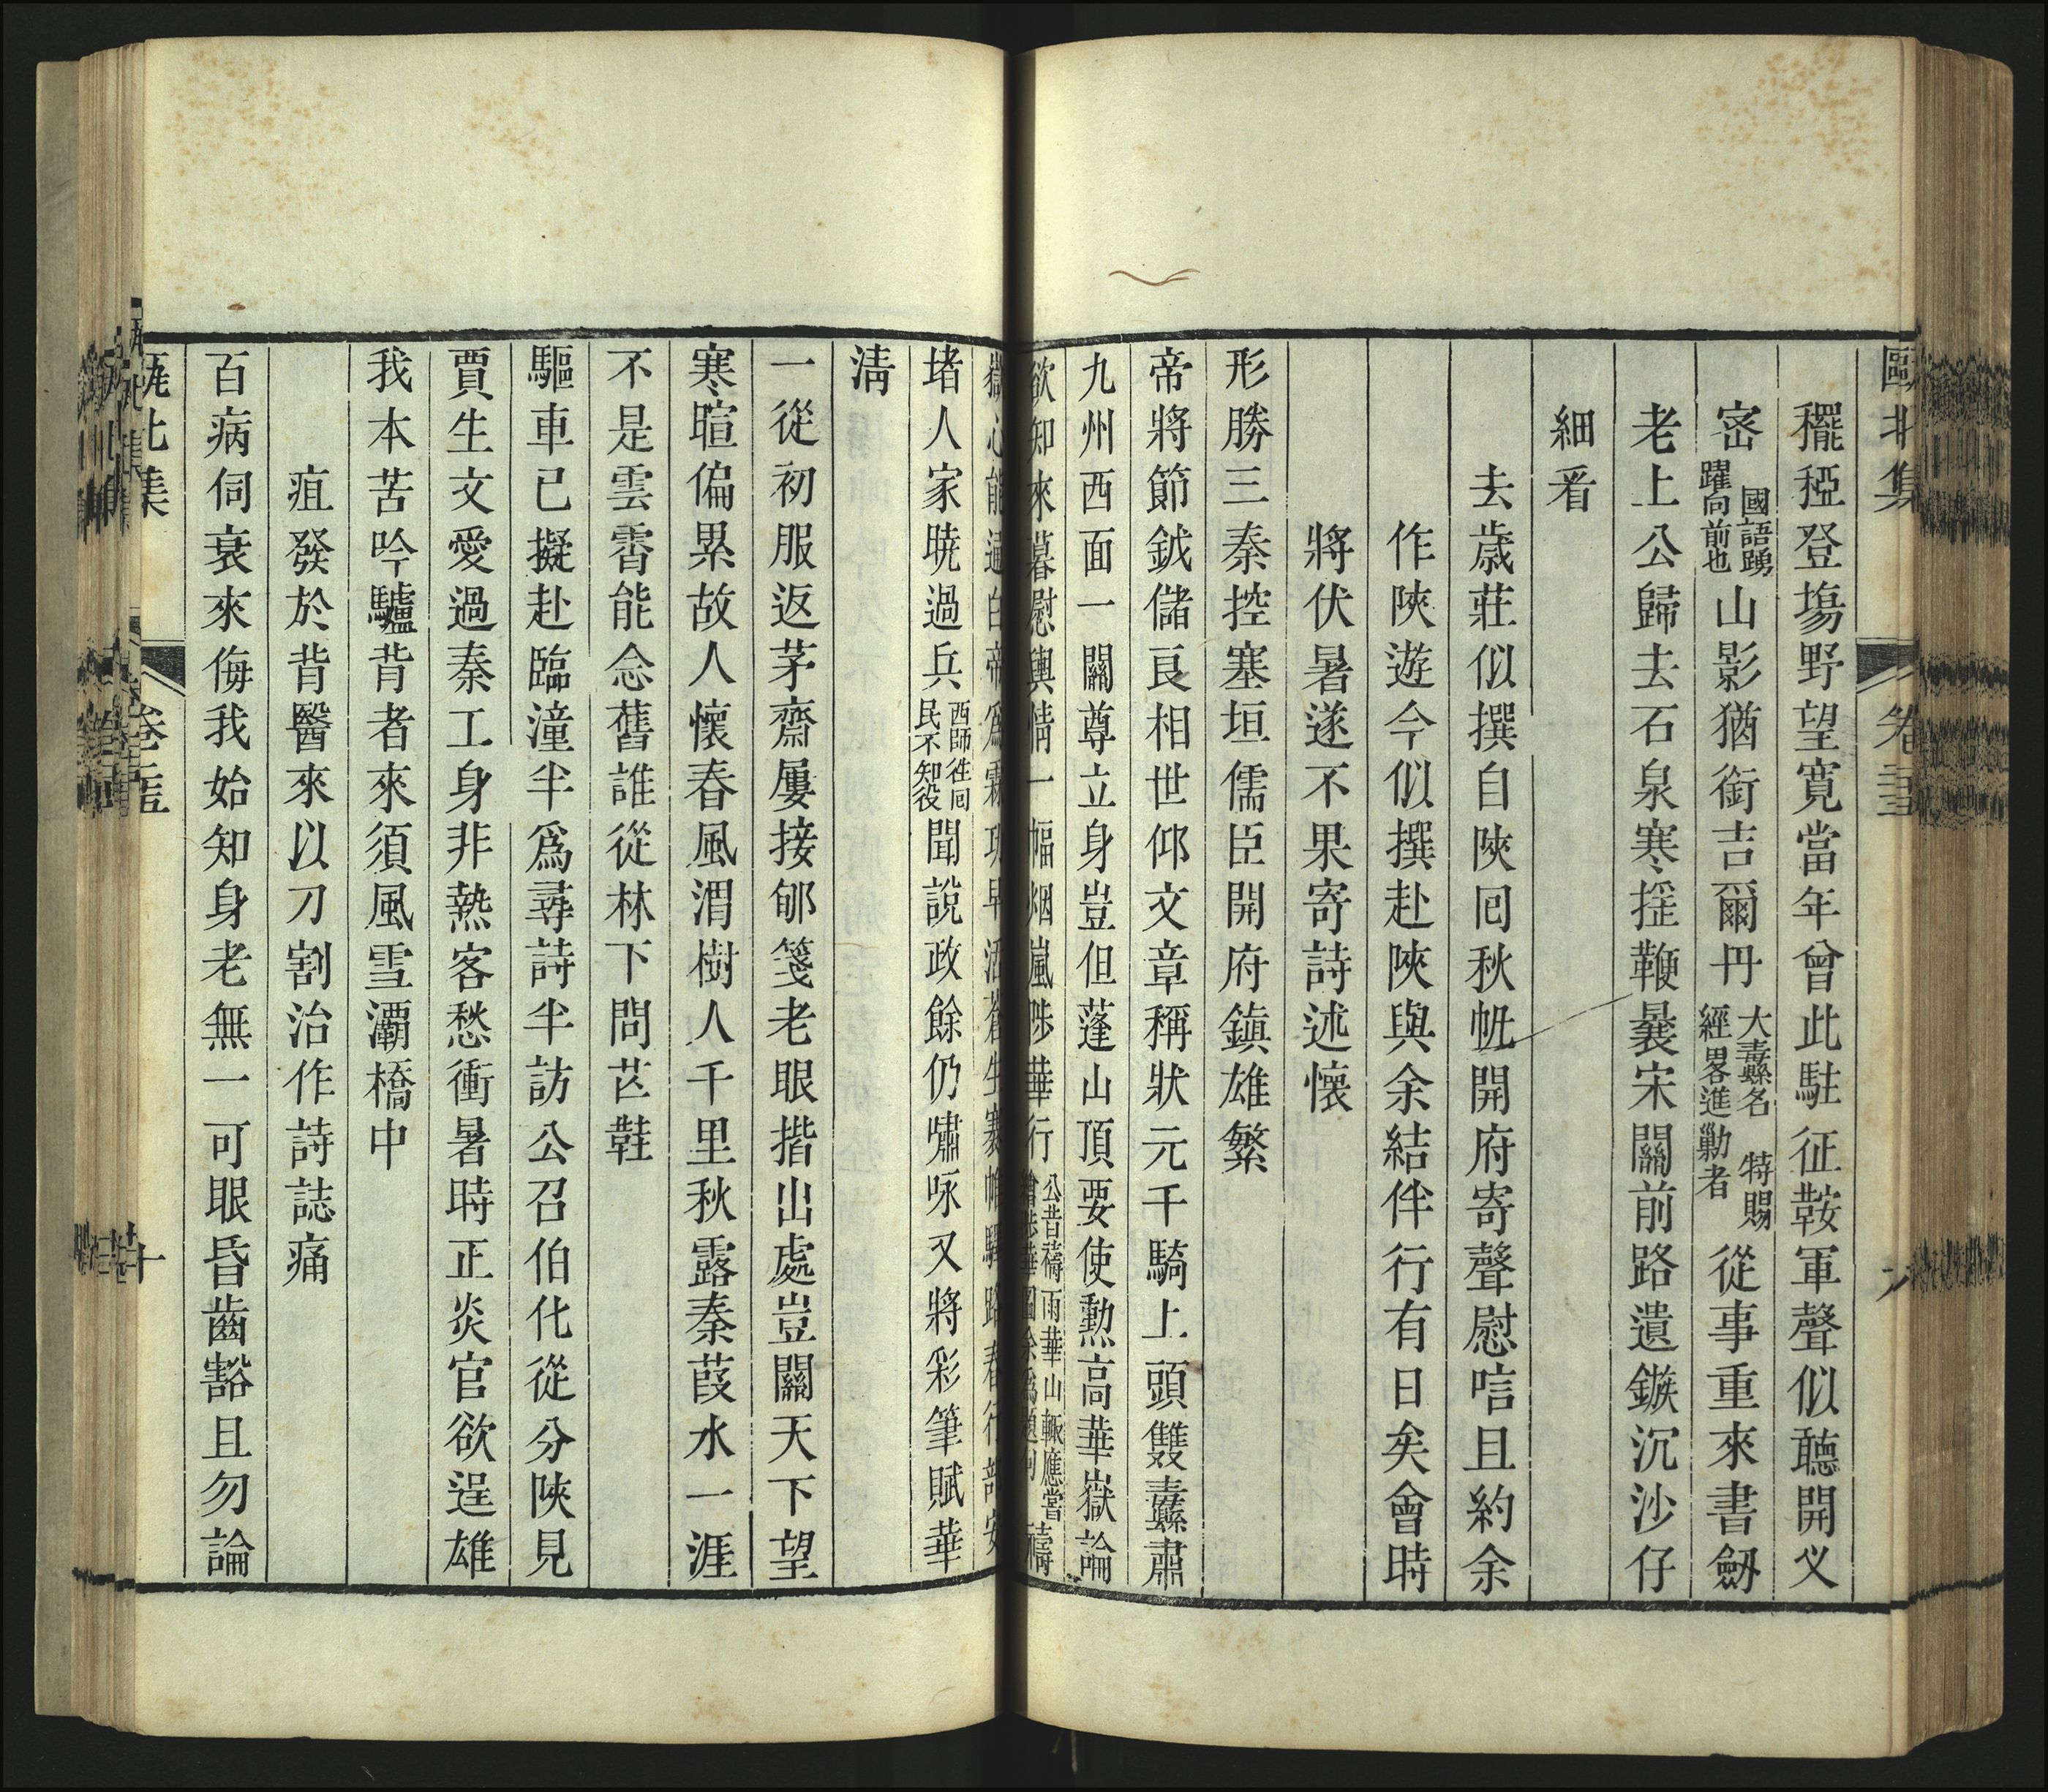 甌北集
卷三
䆉稏登塲野望寛當年曾此駐征鞍軍聲似聽開义
宻國語踴躍向前也山影猶銜吉爾丹大纛名特賜經畧進勦者從事重來書劒
老上公歸去石泉寒揺鞭曩宋關前路遺鏃沉沙仔
細㸔
去歲莊似撰自陜囘秋㠶開府寄聲慰唁且約余
作陜遊今似撰赴陜與余結伴行有日矣會時
將伏暑遂不果寄詩述懷
形勝三秦控塞垣儒臣開府鎮雄繁
帝將節鉞儲良相世仰文章稱狀元千騎上頭雙纛肅
九州西面一關尊立身豈但蓬山頂要使勲高華嶽論
欲知來暮慰輿情一幅烟嵐陟華行公昔禱雨華山輙應嘗繪陟華圖余爲題句禱
嶽心能通白帝爲霖功早活蒼生褰帷驛路春行部安
堵人家曉過兵西師徃囘民不知役聞説政餘仍嘯咏又將彩筆賦華
淸
一從初服返茅齋屢接郇箋老眼揩出處豈關天下望
寒暄偏累故人懷春風渭樹人千里秋露秦葭水一涯
不是雲霄能念舊誰從林下問芒鞵
驅車已擬赴臨潼半爲尋詩半訪公召伯化從分陜見
賈生文愛過秦工身非熱客愁衝暑時正炎官欲逞雄
我本苦吟驢背者來須風雪灞橋中
疽發於背醫來以刀割治作詩誌痛
百病伺衰來侮我始知身老無一可眼昏齒豁且勿論
甌北集
卷三
十